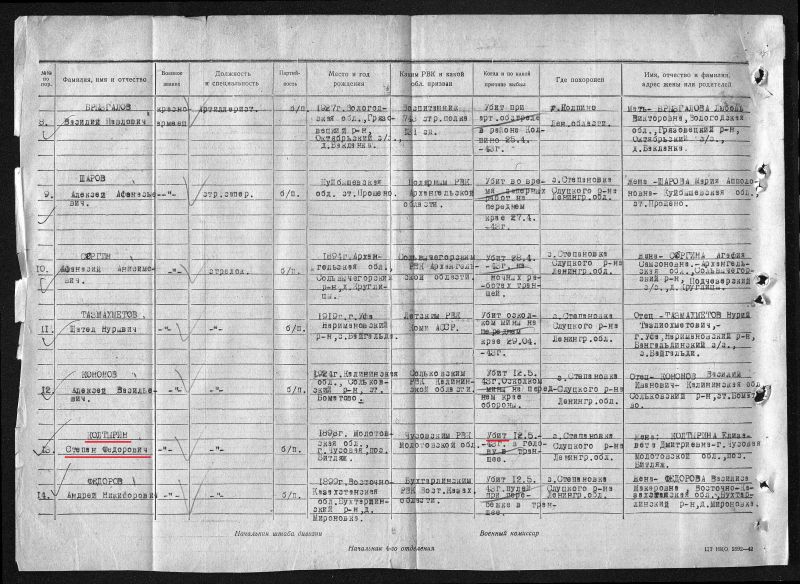 №№ по пор. Фамилия, имя и отчество Военное звание Должность и специальность Партийность Место и год рождения Каким РВК и какой обл. призван Когда и по какой причине выбыл Где похоронен Имя, отчество и фамилия, адрес жены или родителей
8. БРЫЗГАЛОВ Василий Павлович красноармеец Артиллерист. б/п. 1927г. Вологодская обл., Грязовецкий р-н, Октябрьский с/с., д.Бакланка. Воспитанник 743 стр.полка 131 сд. Убит при арт.обстреле в районе Колпино 25.4.-43г. г.Колпино Лен.области. Мать- БРЫЗГАЛОВА Любовь Викторовна, Вологодская обл., Грязовецкий р-н, Октябрьский с/с., д.Бакланка.
9. ШАРОВ Алексей Афанасьевич. -"- стр.сапер. б/п. Куйбышевская обл. ст.Прошено. Полярным РВК Архангельской области. Убит во время саперных работ на переднем крае 27.4.-43г. з.Степановка Слуцкого р-на Ленингр.обл. Жена -ШАРОВА Мария Апполоновна- Куйбышевская обл., ст.Прошено.
10. СЕРГИН Афанасий Анисимович. -"- стрелок. б/п. 1894г.Архангельская обл., Сольвычегорский р-н,д.Круглицы. Сольвычегорским РВК Архангельской области. Убит 28.4.-43г. на ночных работах траншей. з.Степановка Слуцкого р-на Ленингр.обл. Жена -СЕРГИНА Агафия Самсоновна.-Архангельская обл.,Сольвычегорский р-н, Подчеварский с/с.,д.Круглицы.
11. ТАЗМАХМЕТОВ Пател Нурович -"- -"- б/п. 1919г.г.Уфа Наримановский р-н,з.Вайгельда. Летским РВК Коми АССР. Убит осколком мины на переднем крае 29.04.-43г. з.Степановка Слуцкого р-на Ленингр.обл. Отец -ТАЗМАХМЕТОВ Нурий Тазлиохметович,- г.Уфа,Наримановский р-н, з.Вайгельди.
12. КОНОНОВ Алексей Васильевич. -"- -"- б/п. 1924г.Калининская обл., Сольковский р-н, ст. Боматово. Сольковским РВК Калининской обл. Убит 12.5.43г.осколком мины на переднем крае обороны. з.Степановка Слуцкого р-на Ленингр.обл. Отец- КОНОНОВ Василий Иванович- Калининская обл Сольковский р-н,ст.Боматово.
13. КОЛТЫРИН Степан Федорович -"- -"- б/п. 1898г. Молотовская обл., г.Чусовая,пос. Витляж. Чусовским РВК Молотовской обл. Убит 12.5.-43г. в голову в траншее. з.Степановка Слуцкого р-на Ленингр.обл. Жена: КОЛТЫРИНА Елизавета Дмитриевна-г.Чусовая Молотовской обл.,пос. Витляж.
14. ФЕДОРОВ Андрей Никифорович -"- -"- б/п. 1899г.Восточно-Казахстанская обл.,Бухтарминский р-н,д. Мироновка. Бухтарлинским РВК Вост.Казах. области. Убит 12.5.43г.пулей при перебежке в траншее. з.Степановка Слуцкого р-на Ленингр.обл. Жена- ФЕДОРОВА Василиса Макаровна, Восточно-Казахстанской обл.,Бухтарминский р-н,д.Мироновка.
Начальник штаба дивизии Военный комиссар
Начальник 4-го отделения